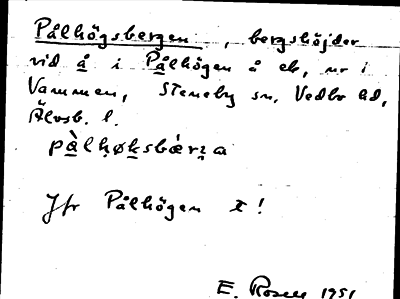 Pålhögsbergen, bergshöjder
vid å i Pålhögen å eb, nr i
Vammen, Steneby sn, Vedbo hd,
Älvsb. l.
Jfr Pålhögen ⵊ!
E. Rosell 1951